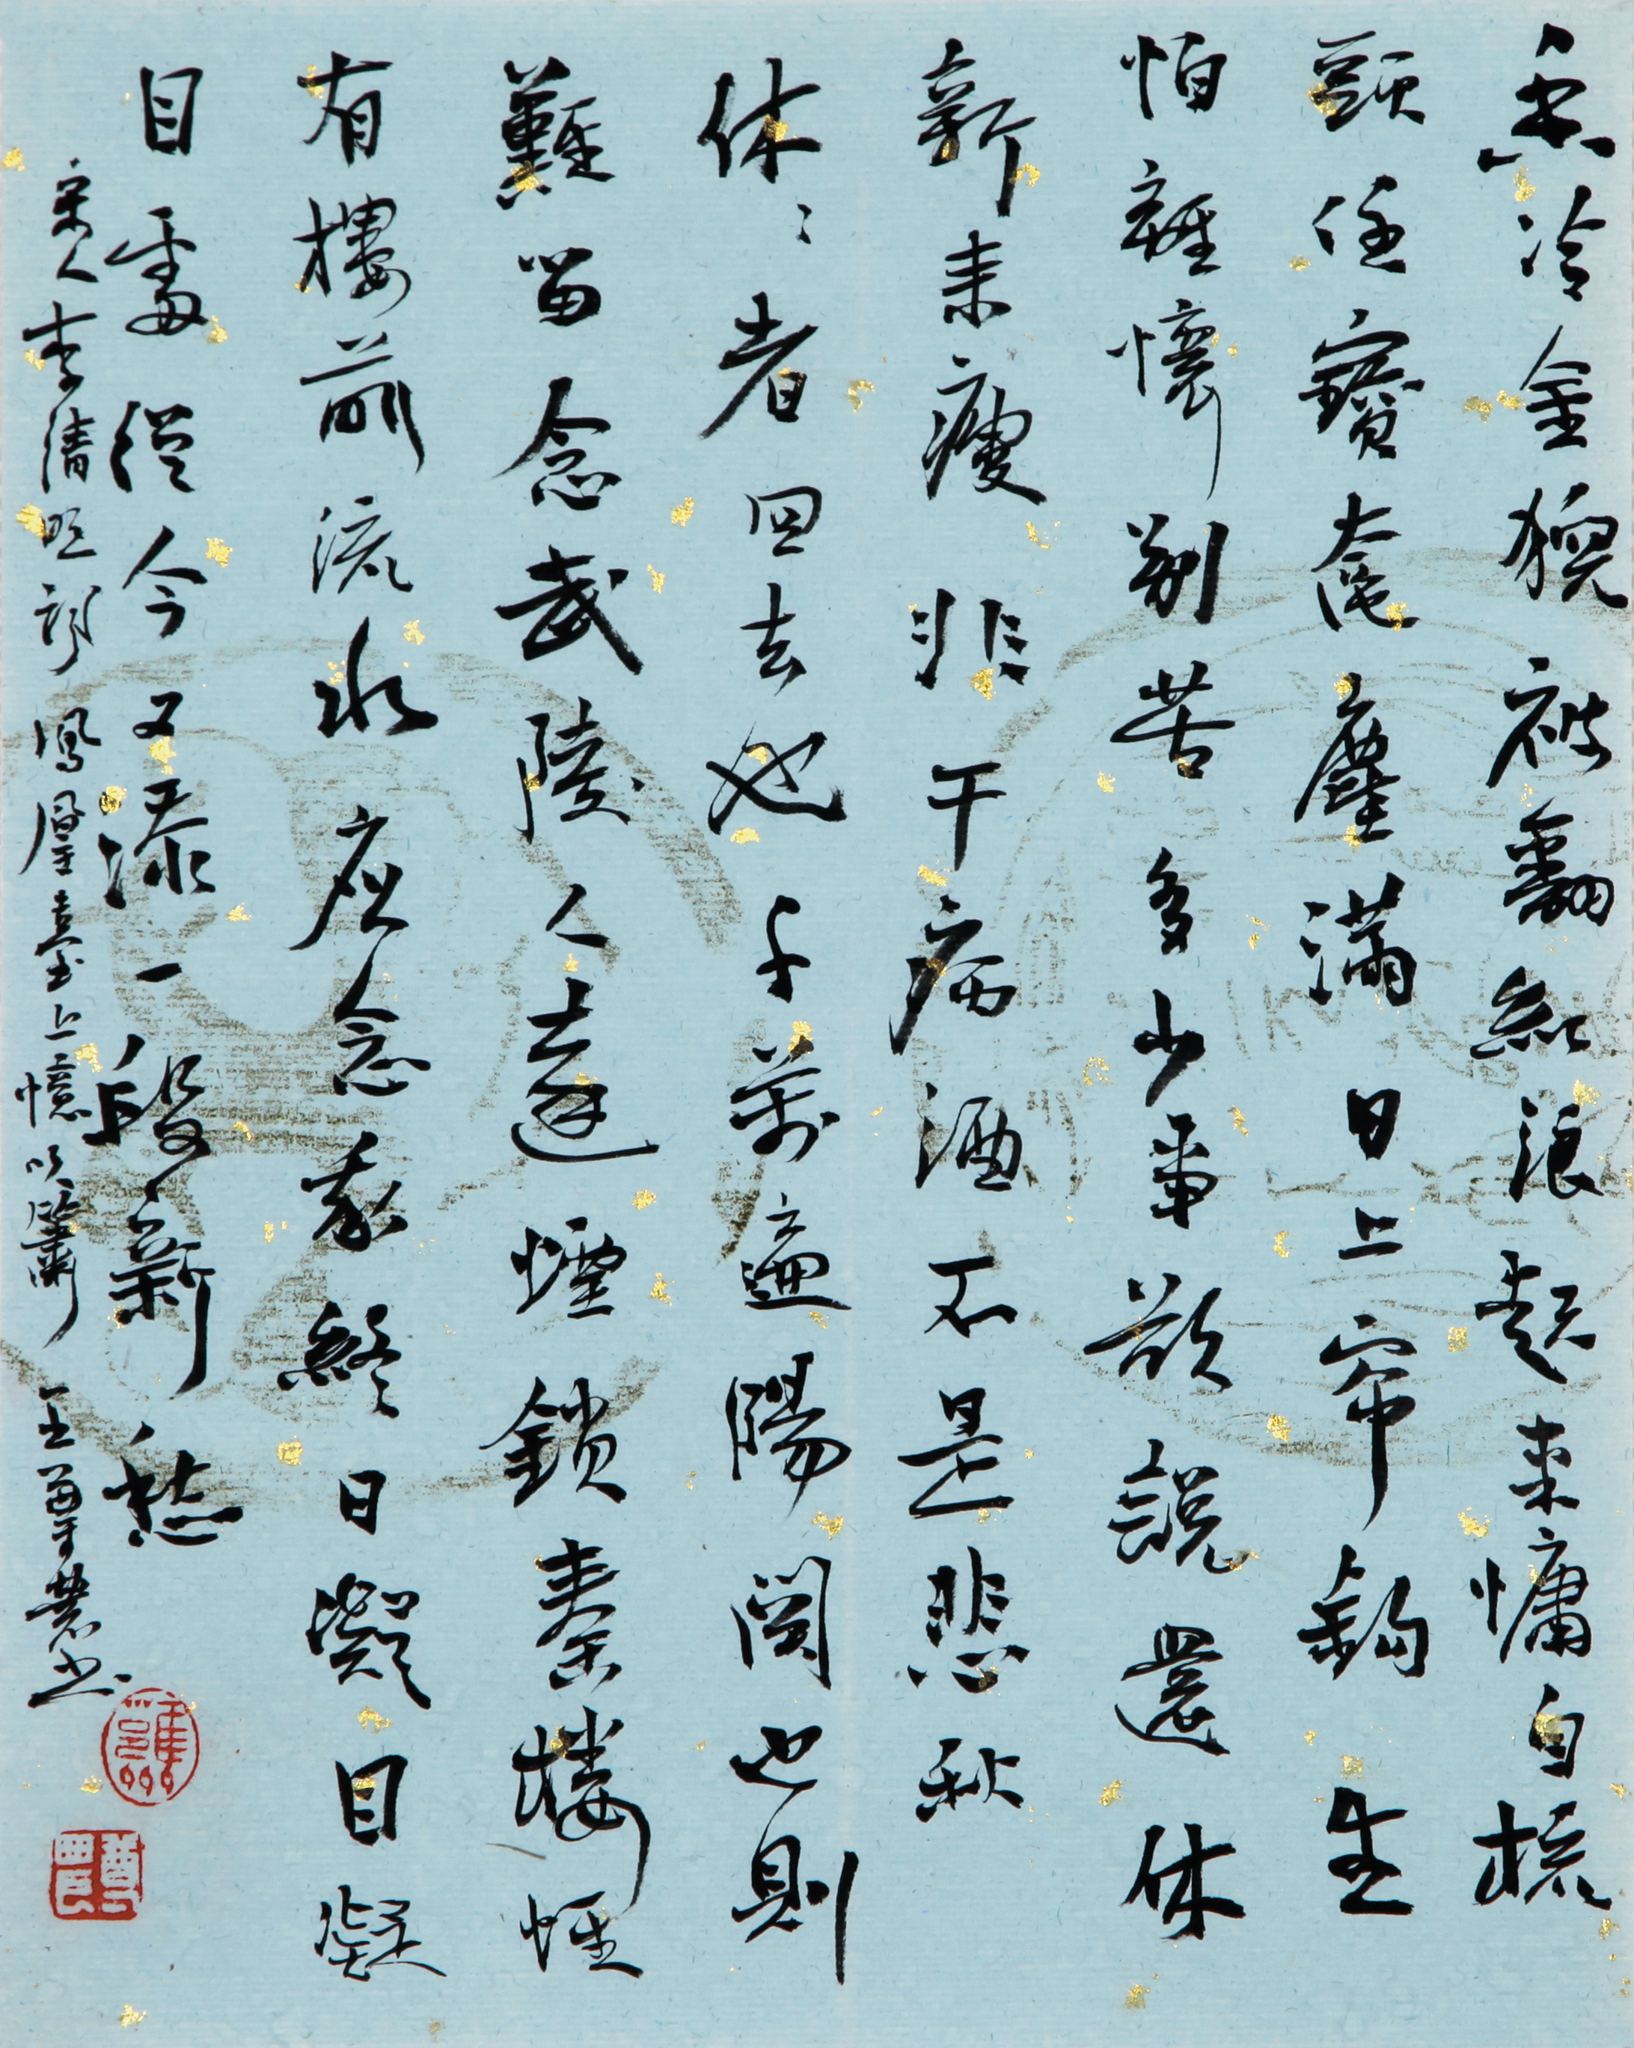 香冷金猊被翻紅浪起來慵自梳
頭任寶奩塵滿日上帘鉤生
怕離懷別苦多少事欲說還休
新來瘦非干病酒不是悲秋
休〻者回去也千萬遍陽関也則
難留念武陵人遠煙鎖秦樓惟
有樓前流水應念我終日凝目凝
目處從今又添一段新愁
宋人李清照詞鳳凰臺上憶吹簫 王尊農書